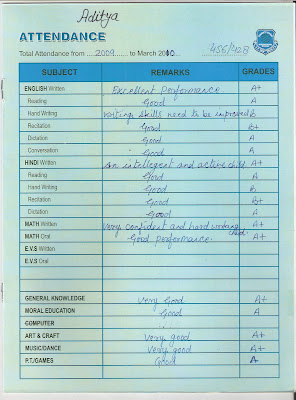 Aditya
ATTENDANCE
Total Attendance from ....2009....... to March 2010....... 456/428
SUBJECT REMARKS GRADES
ENGLISH Written Excellent Performance A+
Reading Good A
Hand Writing writing skills need to be improved B
Recitation Good B+
Dictation Good A
Conversation Good A
HINDI Written An intellegent and active child A+
Reading Good A
Hand Writing Good B
Recitation Good B+
Dictation Good A
MATH Written Very confident and hard working child. A+
MATH Oral Good performance. A+
E.V.S Written
E.V.S Oral
GENERAL KNOWLEDGE Very Good A+
MORAL EDUCATION Good A
COMPUTER
ART & CRAFT Very good A+
MUSIC/DANCE Very good A+
P.T./GAMES Good A